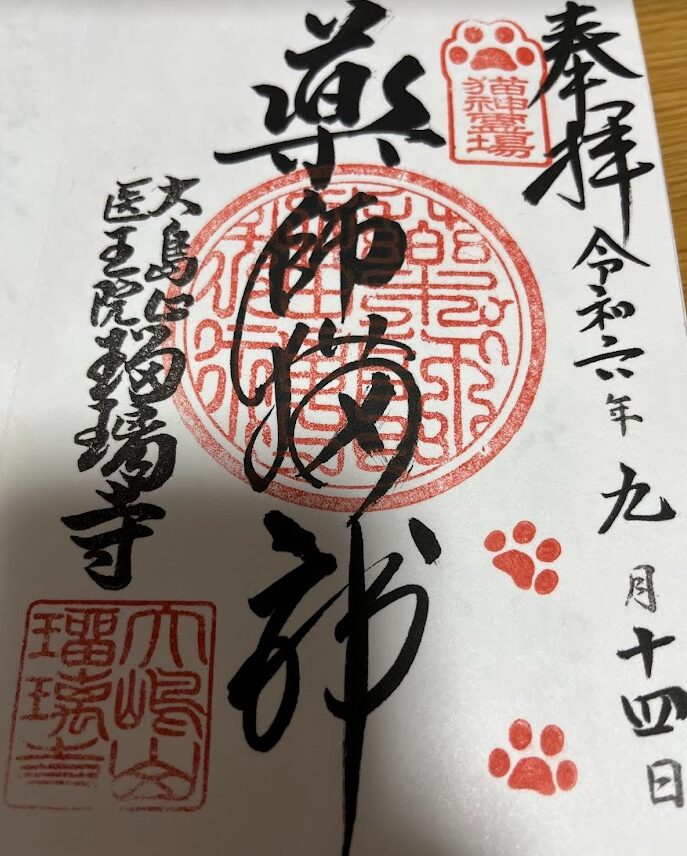 奉拝
令和六年九月十四日
猫神霊場
薬師猫神
大島山
医王院
瑠璃寺
大嶋山
瑠璃寺